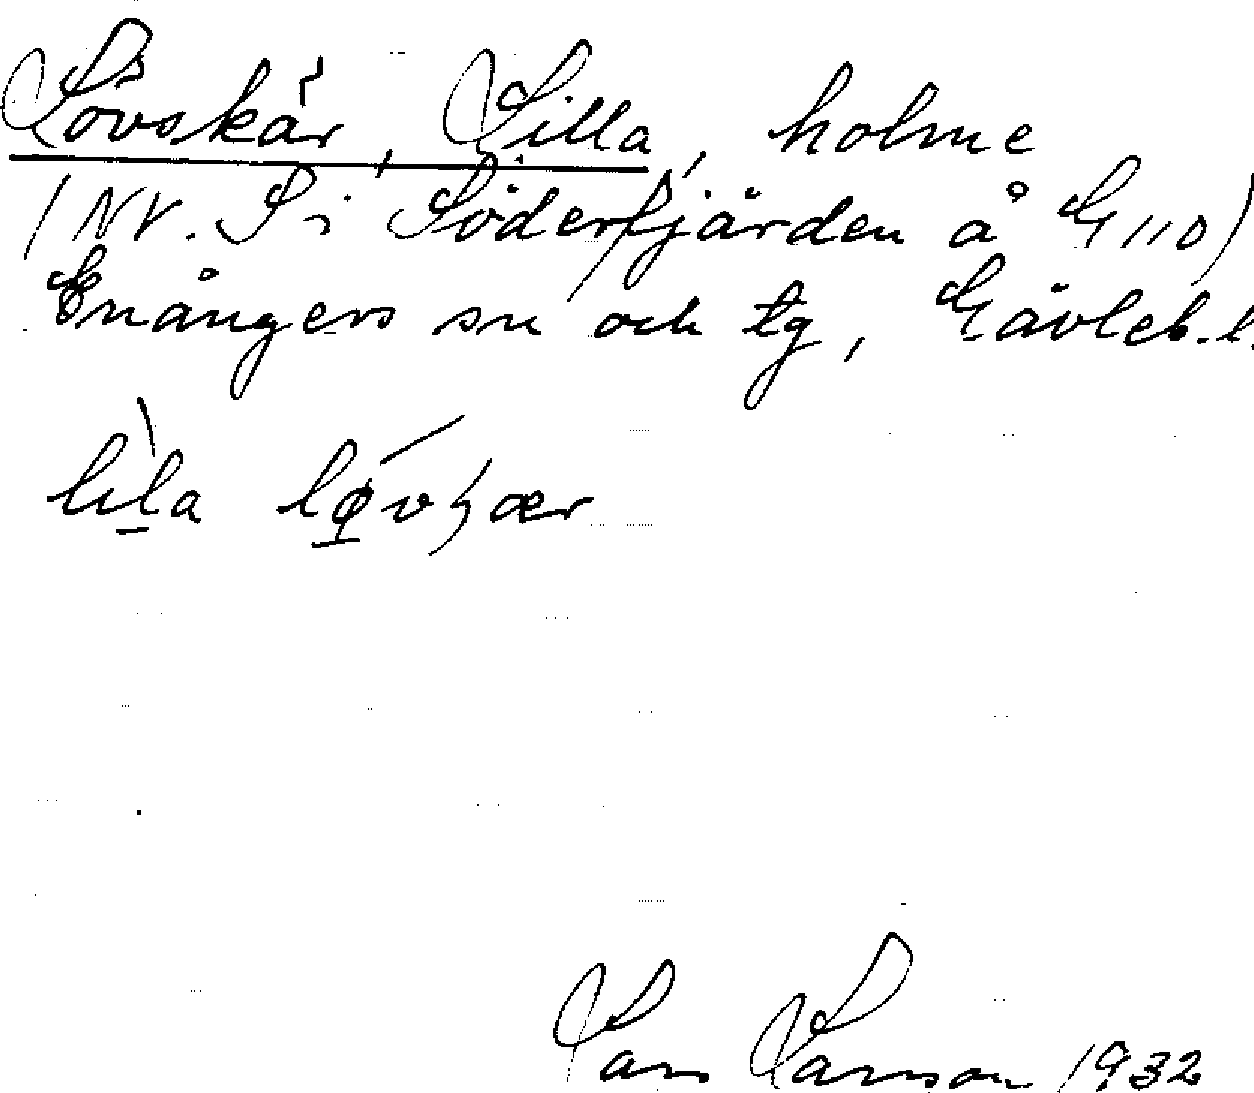 Lövskär, Lilla, holme
(NV. S i Söderfjärden å G 110)
Enångers sn och tg, Gävleb. l.
lila løvʒær
Lars Larsson 1932